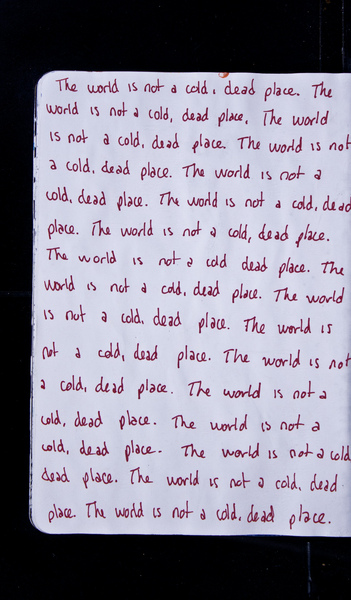 The world is not a cold, dead place. The
world is not a cold, dead place. The world
is not a cold, dead place. The world is not
a cold, dead place. The world is not a
cold, dead place. The world is not a cold, dead
place. The world is not a cold, dead place.
The world is not a cold dead place. The
world is not a cold, dead place. The world
is not a cold, dead place. The world is
not a cold, dead place. The world is not
a cold, dead place. The world is not a
cold, dead place. The world is not a
cold, dead place. The world is not a cold
dead place. The world is not a cold, dead
place. The world is not a cold, dead place.